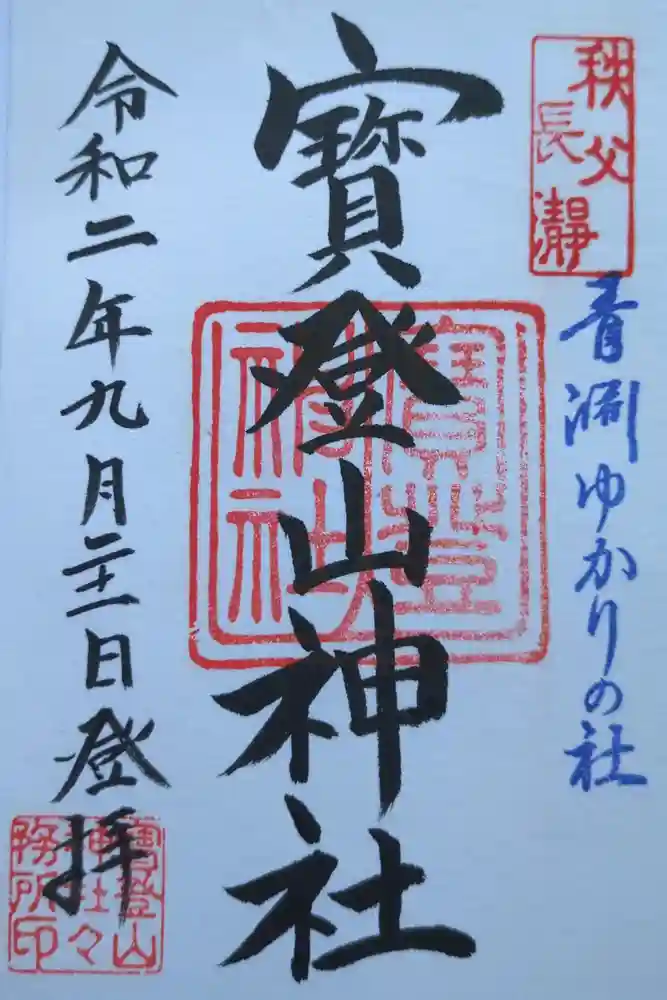 秩父
長瀞
青淵ゆかりの社
寶登山神社
寶登
神社
令和二年九月二十一日登拝
寶登山
神社々
務所印